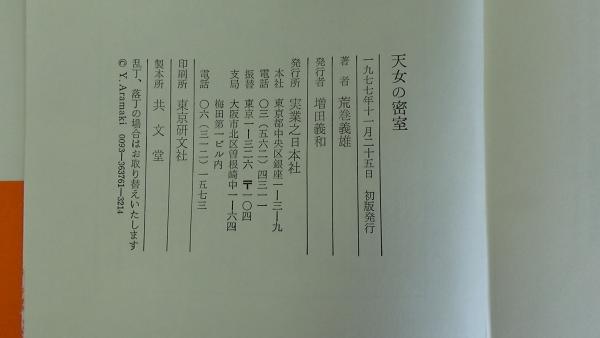 天女の密室
一九七七年十一月二十五日　初版発行
著　者　荒巻義雄
発行者　増田義和
発行所　実業之日本社
本社　東京都中央区銀座一ー三ー九
電話　〇三(五六二)四三一一
振替　東京一ー三二六　〒一〇四
支局　大阪市北区曽根崎中一ー六四
梅田第一ビル内
電話　〇六(三一二)一五七三
印刷所　東京研文社
製本所　共文堂
乱丁、落丁の場合はお取り替えいたします
© Y. Aramaki 0093—363761—3214